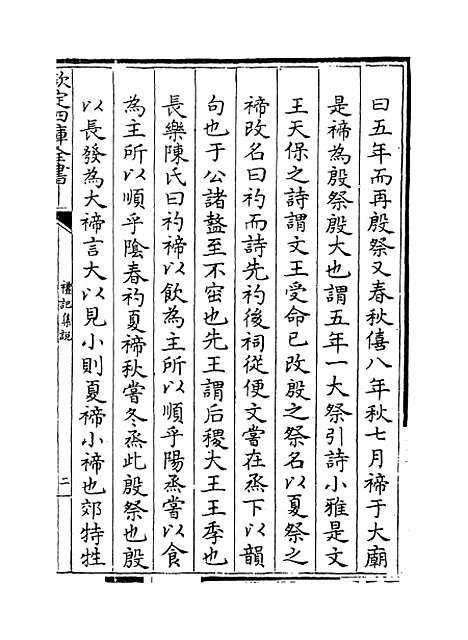 曰五年而再殷祭又春秋僖八年秋七月禘于大廟
是禘為殷祭殷大也謂五年一大祭引詩小雅是文
王天保之詩謂文王受命已改殷之祭名以夏祭之
禘改名曰礿而詩先礿後祠從便文嘗在烝下以韻
句也于公諸盩至不窋也先王謂后稷大王王季也
長樂陳氏曰礿禘以飲為主所以順乎陽烝嘗以食
為主所以順乎陰春礿夏禘秋嘗冬烝此殷祭也殷
以長發為大禘言大以見小則夏禘小禘也郊特牲
欽定四庫全書
禮記集説
二